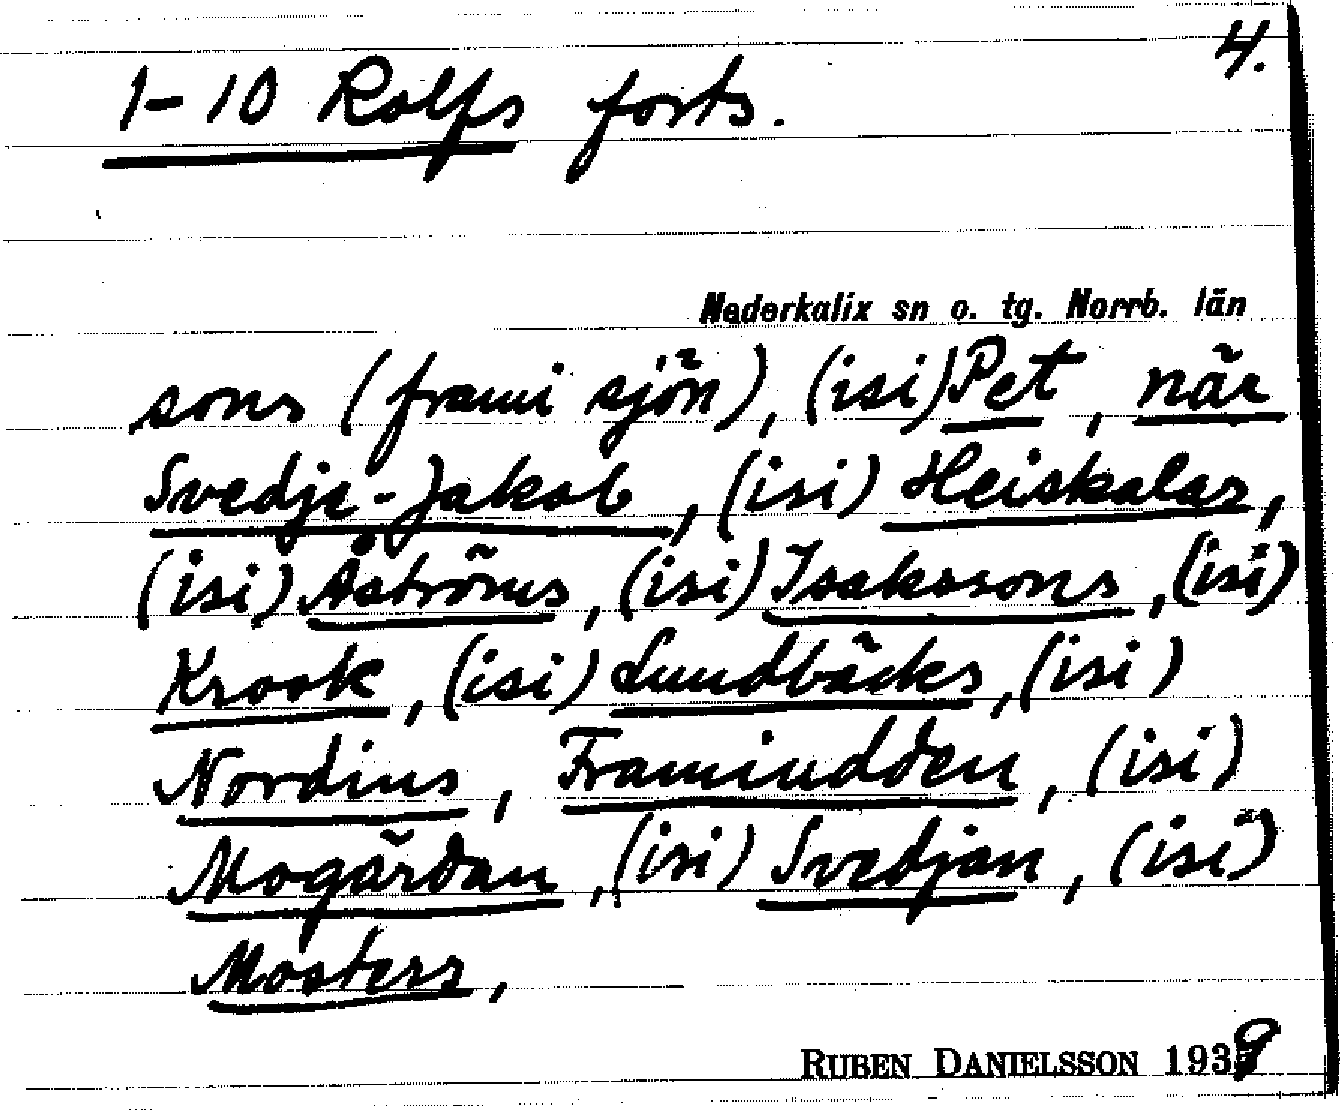 4.
1-10 Rolfs forts.
Nederkalix sn o. tg. Norrb. län
sons (frami sjön), (isi) Pet, när
Svedje-Jakob, (isi) Heiskalas,
(isi) Åströms, (isi) Isakssons, (isi)
Krook, (isi) Lundbäcks, (isi)
Nordins, Framiudden, (isi)
Mogärdan, (isi) Svedjan, (isi)
Mosters,
RUBEN DANIELSSON 1939